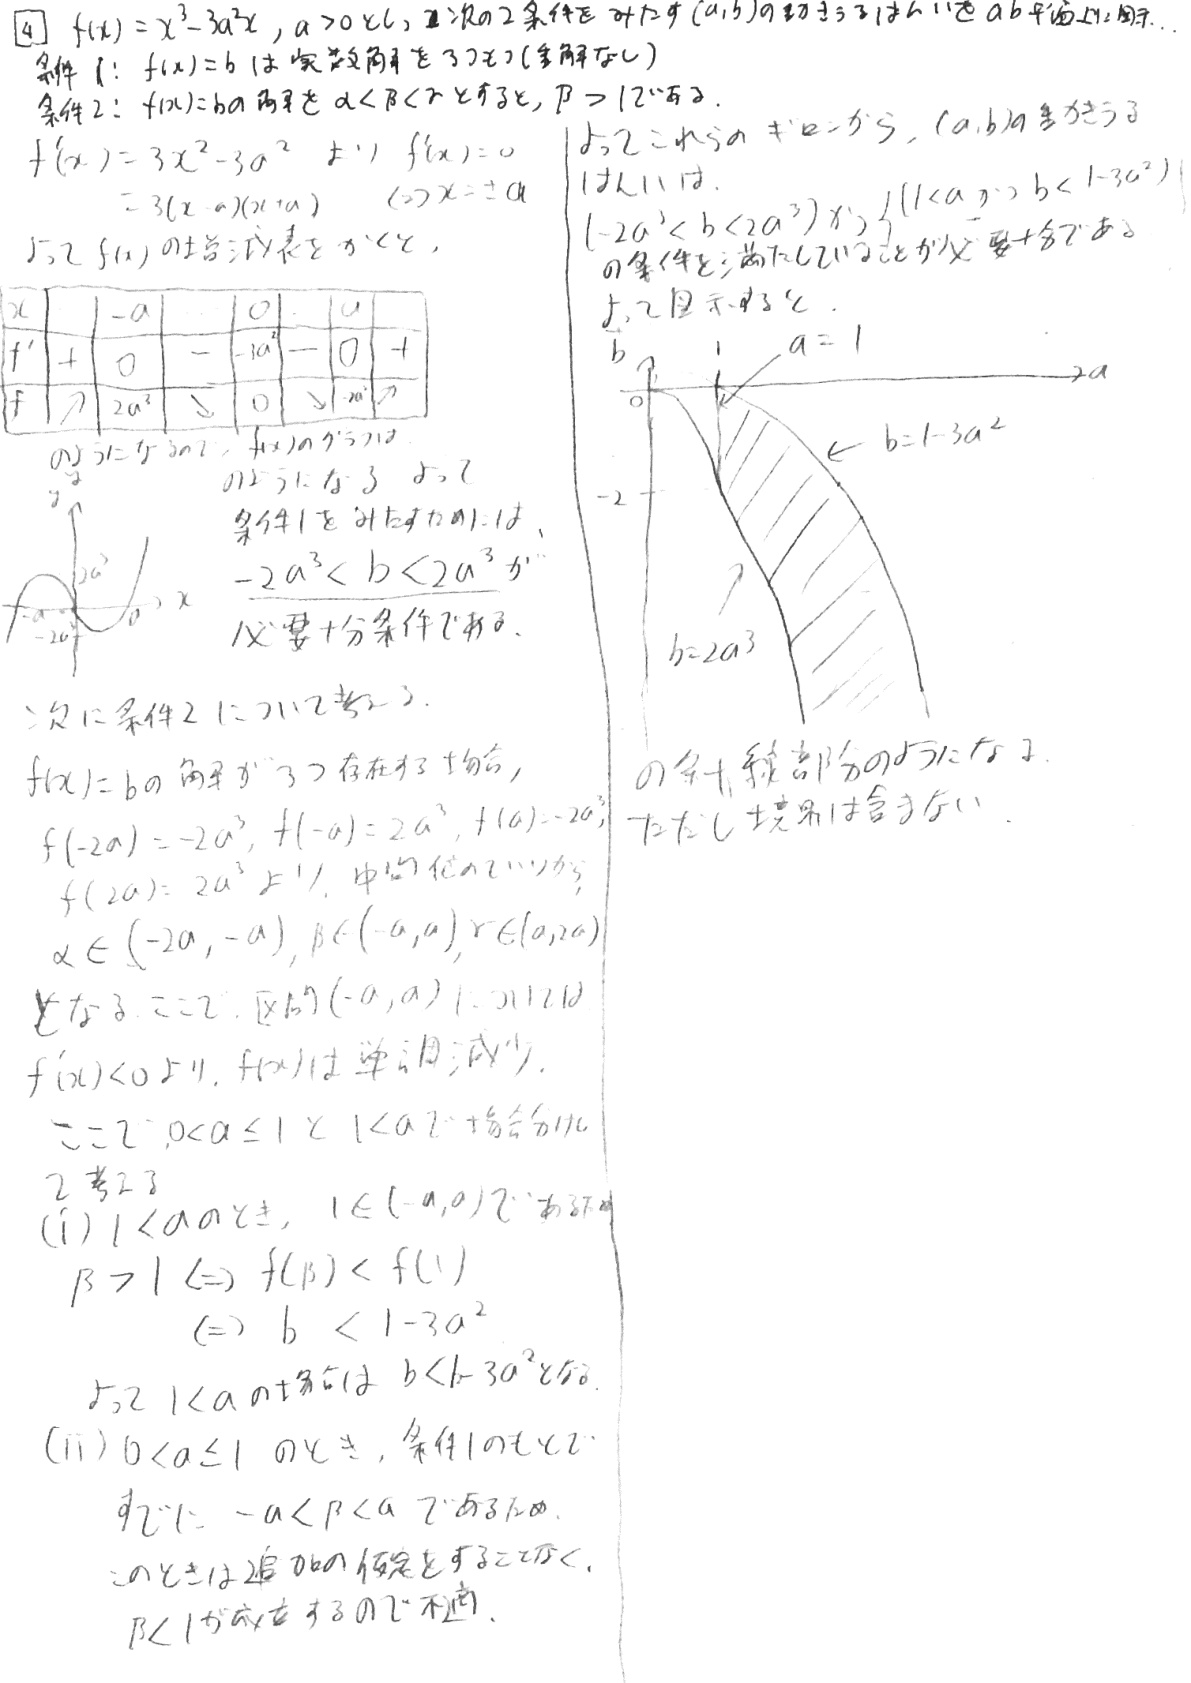 4 f(x)=x³-3a²x, a>0とし、次の2条件をみたす(a,b)の動きうるはんいをab平面上に図示..
条件1: f(x)=bは実数解を3つもつ(重解なし)
条件2: f(x)=bの解をα<β<γとすると, β>1である.
f'(x)=3x²-3a² より f'(x)=0
=3(x-a)(x+a) ⇔x=±a
よってf(x)の増減表をかくと,
x -a 0 a
f' + 0 - -3a² - 0 +
f ↗ 2a³ ↘ 0 ↘ -2a³ ↗
のようになるので, f(x)のグラフは
y
2a³
-a a x
-2a³
のようになる よって
条件1をみたすためには、
-2a³<b<2a³が
必要十分条件である.
次に条件2について考える.
f(x)=bの解が3つ存在する場合,
f(-2a)=-2a³, f(-a)=2a³, f(a)=-2a³,
f(2a)=2a³より, 中間値のていりから,
α∈(-2a,-a), β∈(-a,a), γ∈(a,2a)
となる. ここで, 区間(-a,a)については
f'(x)<0より, f(x)は単調減少.
ここで, 0<a≤1と1<aで場合分けし
て考える
(i) 1<aのとき, 1∈(-a,a)であるため
β>1⇔f(β)<f(1)
⇔ b <1-3a²
よって1<aの場合はb<1-3a²となる.
(ii) 0<a≤1 のとき, 条件1のもとで
すでに -a<β<aであるため.
このときは追加の仮定をすることなく,
β<1が成立するので不適.
よってこれらのギロンから, (a,b)の動きうる
はんいは.
(-2a³<b<2a³)かつ{(1<aかつb<1-3a²)}
の条件を満たしていることが必要十分である
よって図示すると.
b 1 a=1
0 a
b=1-3a²
-2
b=2a³
の斜線部分のようになる.
ただし境界は含まない.